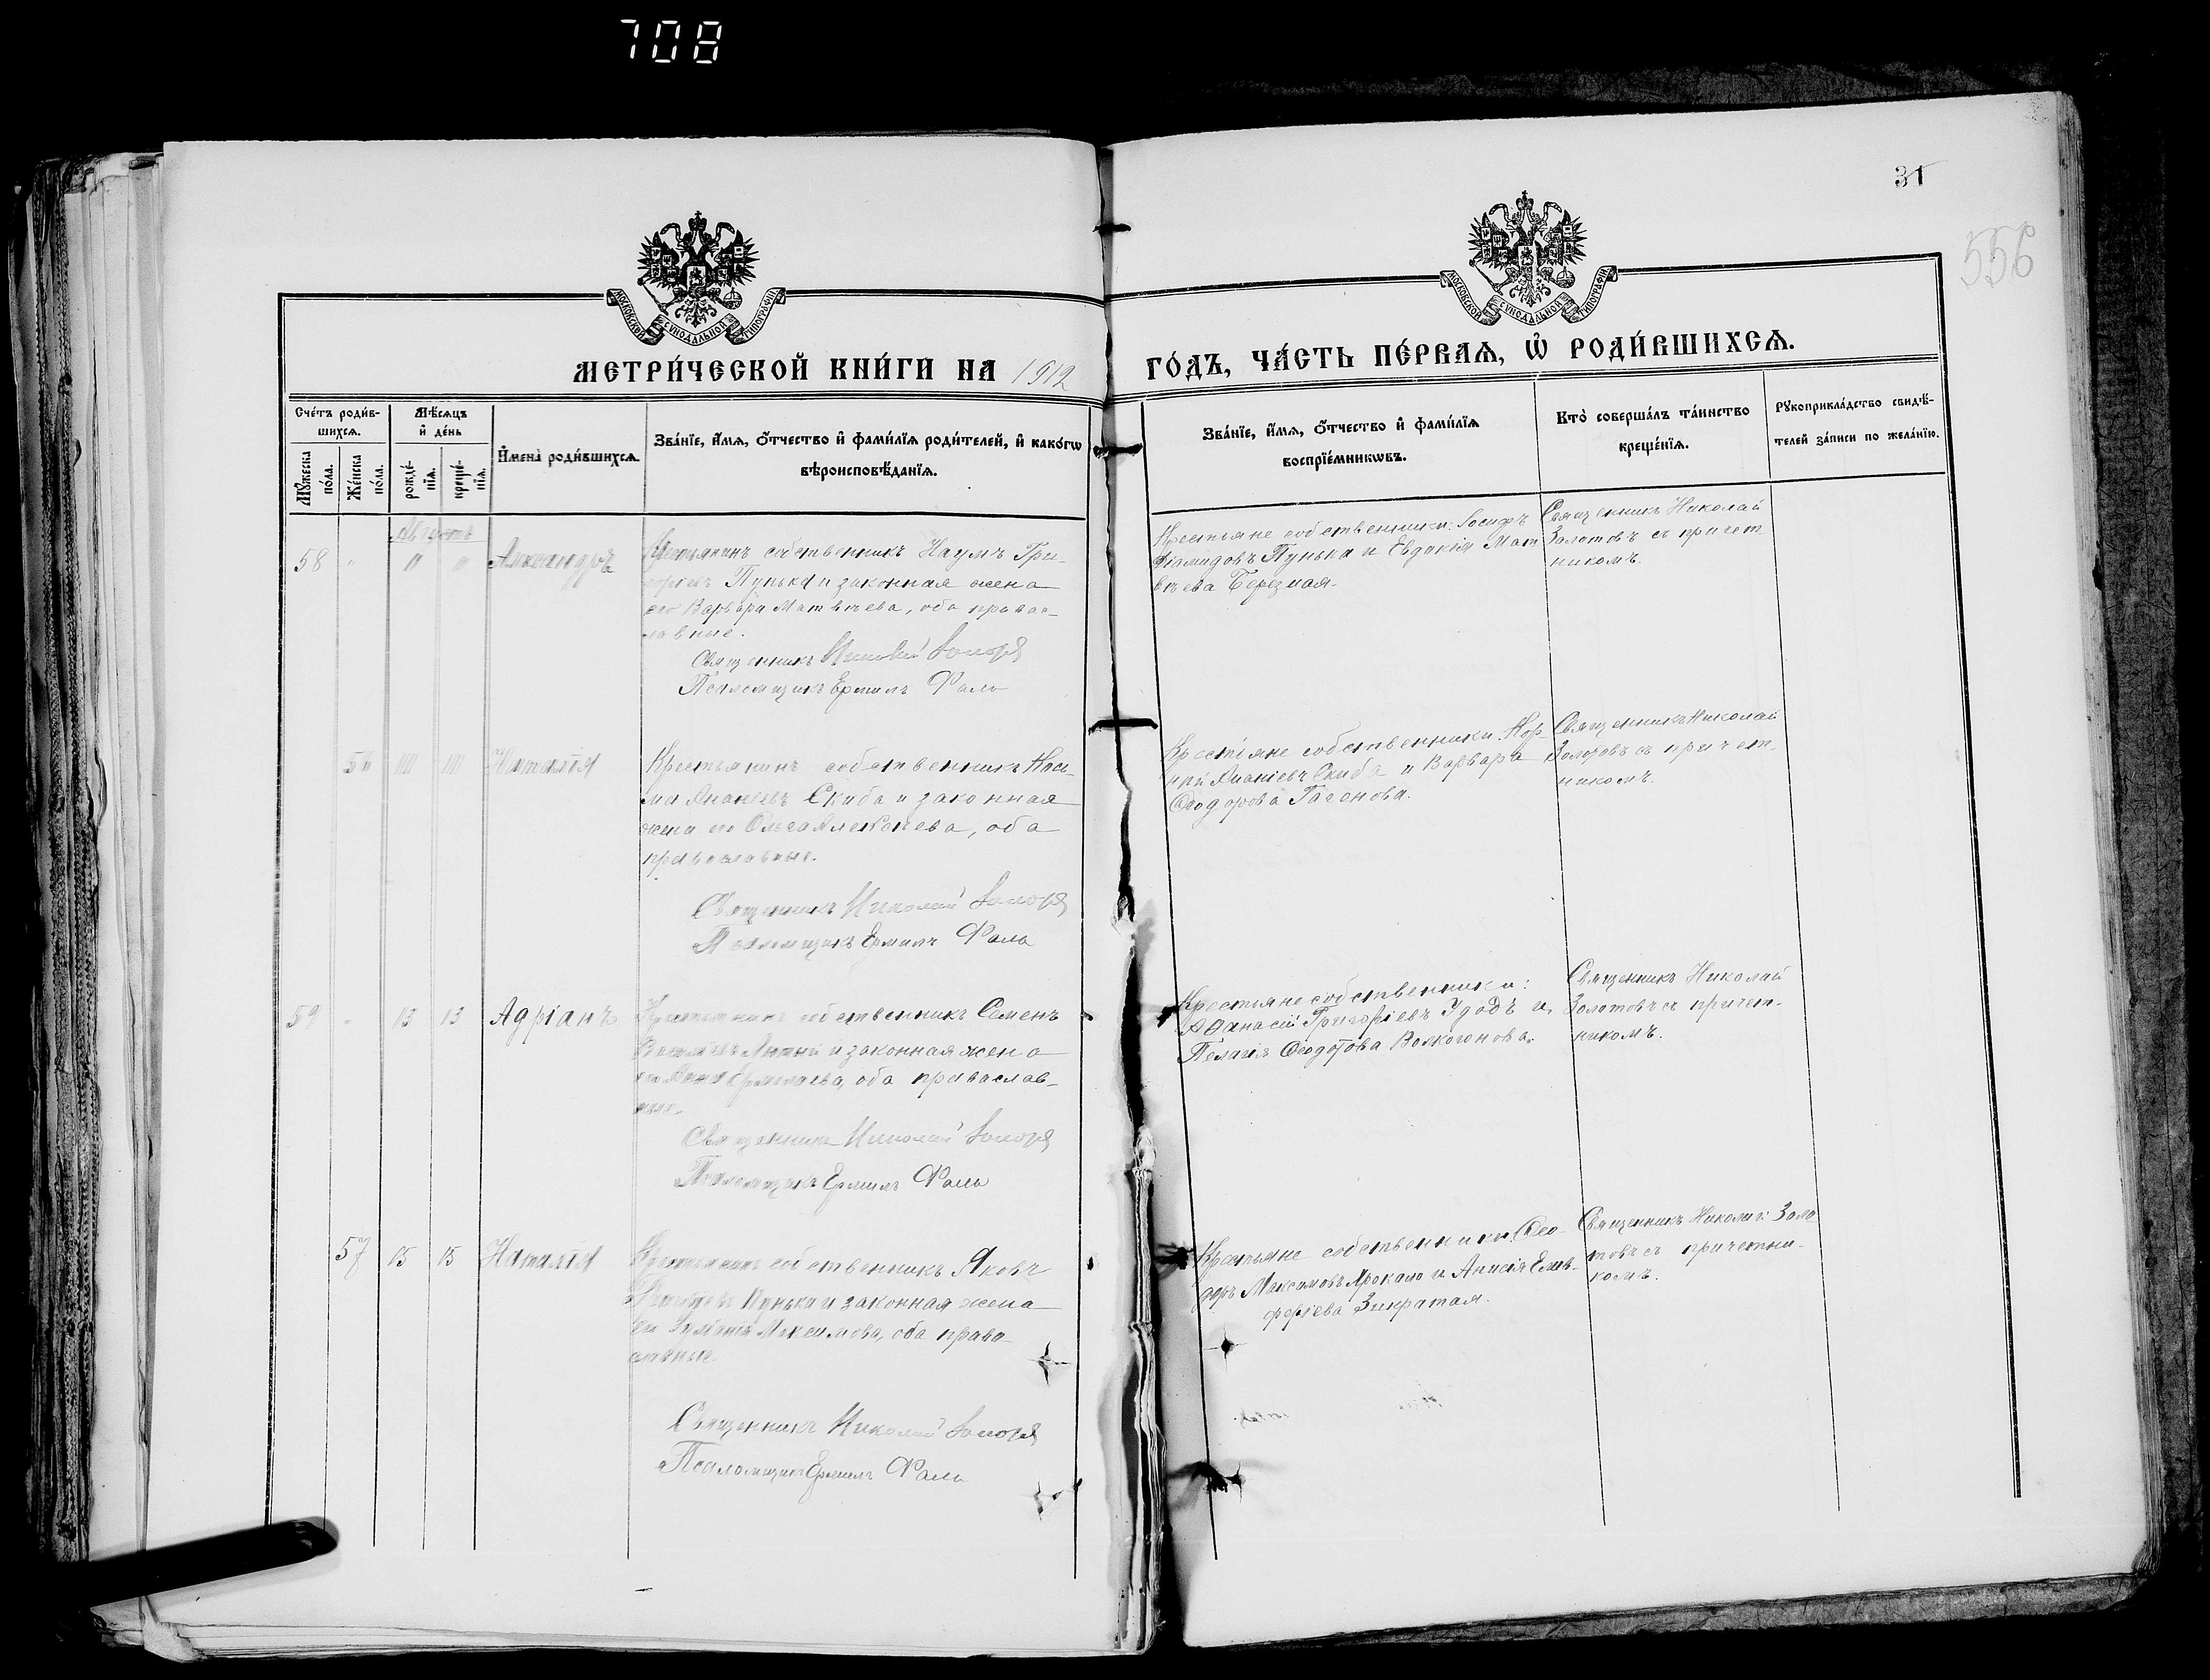 708
31
556
МОСКОВСКОЙ СѴНОДАЛЬНОЙ ТИПОГРАФІИ
МОСКОВСКОЙ СѴНОДАЛЬНОЙ ТИПОГРАФІИ
МЕТРИ́ЧЕСКОЙ КНИ́ГИ НА 1912
ГО́ДЪ, ЧА́СТЬ ПЕ́РВАѦ, Ѡ҆ РОДИ́ВШИХСѦ.
Сче́тъ роди́в-
шихсѧ.
Мѣ́сѧцъ
и҆ де́нь
Мꙋ́жеска
по́ла.
Же́нска
по́ла.
рожде́-
нїѧ.
креще́-
нїѧ.
И҆мена̀ роди́вшихсѧ.
Зва́нїе, и҆́мѧ, ѻ҆́тчество и҆ фами́лїѧ роди́телей, и҆ како́гѡ
вѣроисповѣ́данїѧ.
Зва́нїе, и҆́мѧ, ѻ҆́тчество и҆ фами́лїѧ
воспрїе́мникѡвъ.
Кто̀ соверша́лъ та́инство
креще́нїѧ.
Рꙋкоприкла́дство свидѣ́-
телей за́писи по жела́нїю.
Августъ
58
11
Александръ
Крестьянинъ собственникъ Наумъ Гри-
горіевъ Пунька и законная жена
его Варвара Матвѣева, оба правос-
лавные.
Священникъ Николай
Псаломщикъ Ермилъ Фаль
Крестьяне собственники: Іосифъ
Пунька и Евдокія Мат
вѣева Березная.
Священникъ Николай
Золотовъ съ причет
никомъ.
56
Наталія
Крестьянинъ собственникъ
Скиба и законная
жена его Ольга Алексѣева, оба
православные.
Священникъ Николай
Псаломщикъ Ермилъ Фаль
Крестіяне собственники:
Ананіевъ Скиба и Варвара
Ѳеодорова Гагенова.
Священникъ Николай
Золотовъ съ причет-
никомъ.
59
13
13
Адріанъ
Крестьянинъ собственникъ Семенъ
и законная жена
его Ермолаева, оба православ-
ные.
Священникъ Николай
Псаломщикъ Ермилъ Фаль
Крестьяне собственники:
Аѳанасій Григоріевъ Удодъ и
Пелагія Ѳеодотова Волкогонова.
Священникъ Николай
Золотовъ съ причет-
никомъ.
57
15
15
Наталія
Крестьянинъ собственникъ Яковъ
Пунька и законная жена
его Максимова, оба право
славные.
Священникъ Николай
Псаломщикъ Ермилъ Фаль
Крестьяне собственники: Ѳео-
доръ Максимовъ и Анисія Елев-
феріева Зикратая.
Священникъ Николай Золо
товъ съ причетни-
комъ.